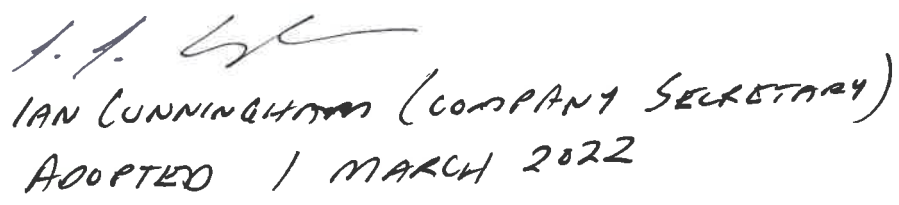 IAN CUNNINGHAM (COMPANY SECRETARY)
ADOPTED 1 MARCH 2022